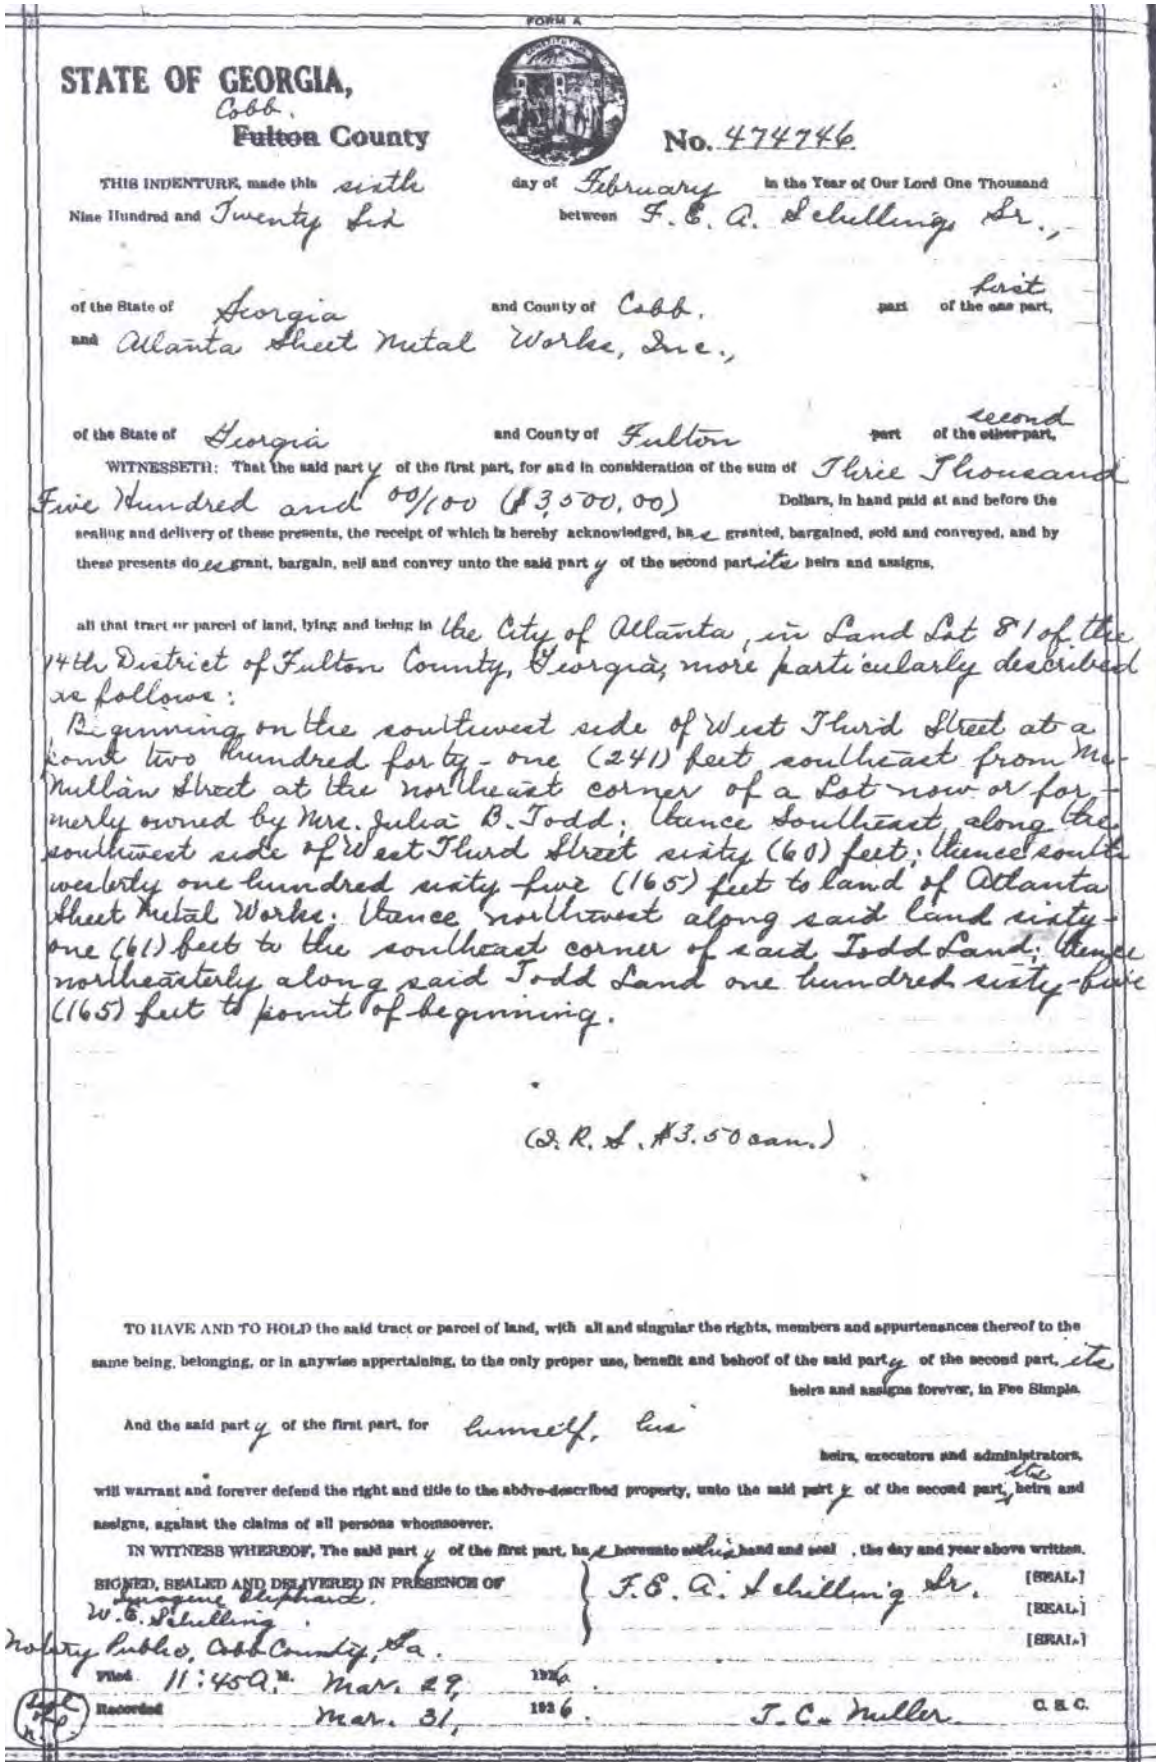 FORM A
STATE OF GEORGIA,
Cobb.
Fulton County
No. 474746
THIS INDENTURE, made this sixth day of February in the Year of Our Lord One Thousand
Nine Hundred and Twenty Six between F. E. A. Schilling, Sr.,
first
of the State of Georgia and County of Cobb. part of the one part,
and Atlanta Sheet Metal Works, Inc.,
second
of the State of Georgia and County of Fulton part of the other part,
WITNESSETH: That the said party of the first part, for and in consideration of the sum of Three Thousand
Five Hundred and 00/100 ($3,500.00) Dollars, in hand paid at and before the
sealing and delivery of these presents, the receipt of which is hereby acknowledged, has granted, bargained, sold and conveyed, and by
these presents does grant, bargain, sell and convey unto the said party of the second part, its heirs and assigns,
all that tract or parcel of land, lying and being in the City of Atlanta, in Land Lot 81 of the
14th District of Fulton County, Georgia, more particularly described
as follows:
Beginning on the southwest side of West Third Street at a
point two hundred forty-one (241) feet southeast from Mc-
Millan Street at the northeast corner of a Lot now or for-
merly owned by Mrs. Julia B. Todd; thence Southeast along the
southwest side of West Third Street sixty (60) feet; thence south
westerly one hundred sixty-five (165) feet to land of Atlanta
Sheet Metal Works; thence northwest along said land sixty-
one (61) feet to the southeast corner of said Todd Land; thence
northeasterly along said Todd Land one hundred sixty-five
(165) feet to point of beginning.
(I. R. S. $3.50 can.)
TO HAVE AND TO HOLD the said tract or parcel of land, with all and singular the rights, members and appurtenances thereof to the
same being, belonging, or in anywise appertaining, to the only proper use, benefit and behoof of the said party of the second part, its
heirs and assigns forever, in Fee Simple.
And the said party of the first part, for himself, his
heirs, executors and administrators,
its
will warrant and forever defend the right and title to the above-described property, unto the said party of the second part, heirs and
assigns, against the claims of all persons whomsoever.
IN WITNESS WHEREOF, The said party of the first part, has hereunto set his hand and seal , the day and year above written.
SIGNED, SEALED AND DELIVERED IN PRESENCE OF F. E. A. Schilling Sr. [SEAL]
Imogene
W. E. Schilling. [SEAL]
Notary Public, Cobb County, Ga. [SEAL]
Filed 11:45 A. M. Mar. 29, 1926.
Recorded Mar. 31, 1926. J. C. Miller C. S. C.